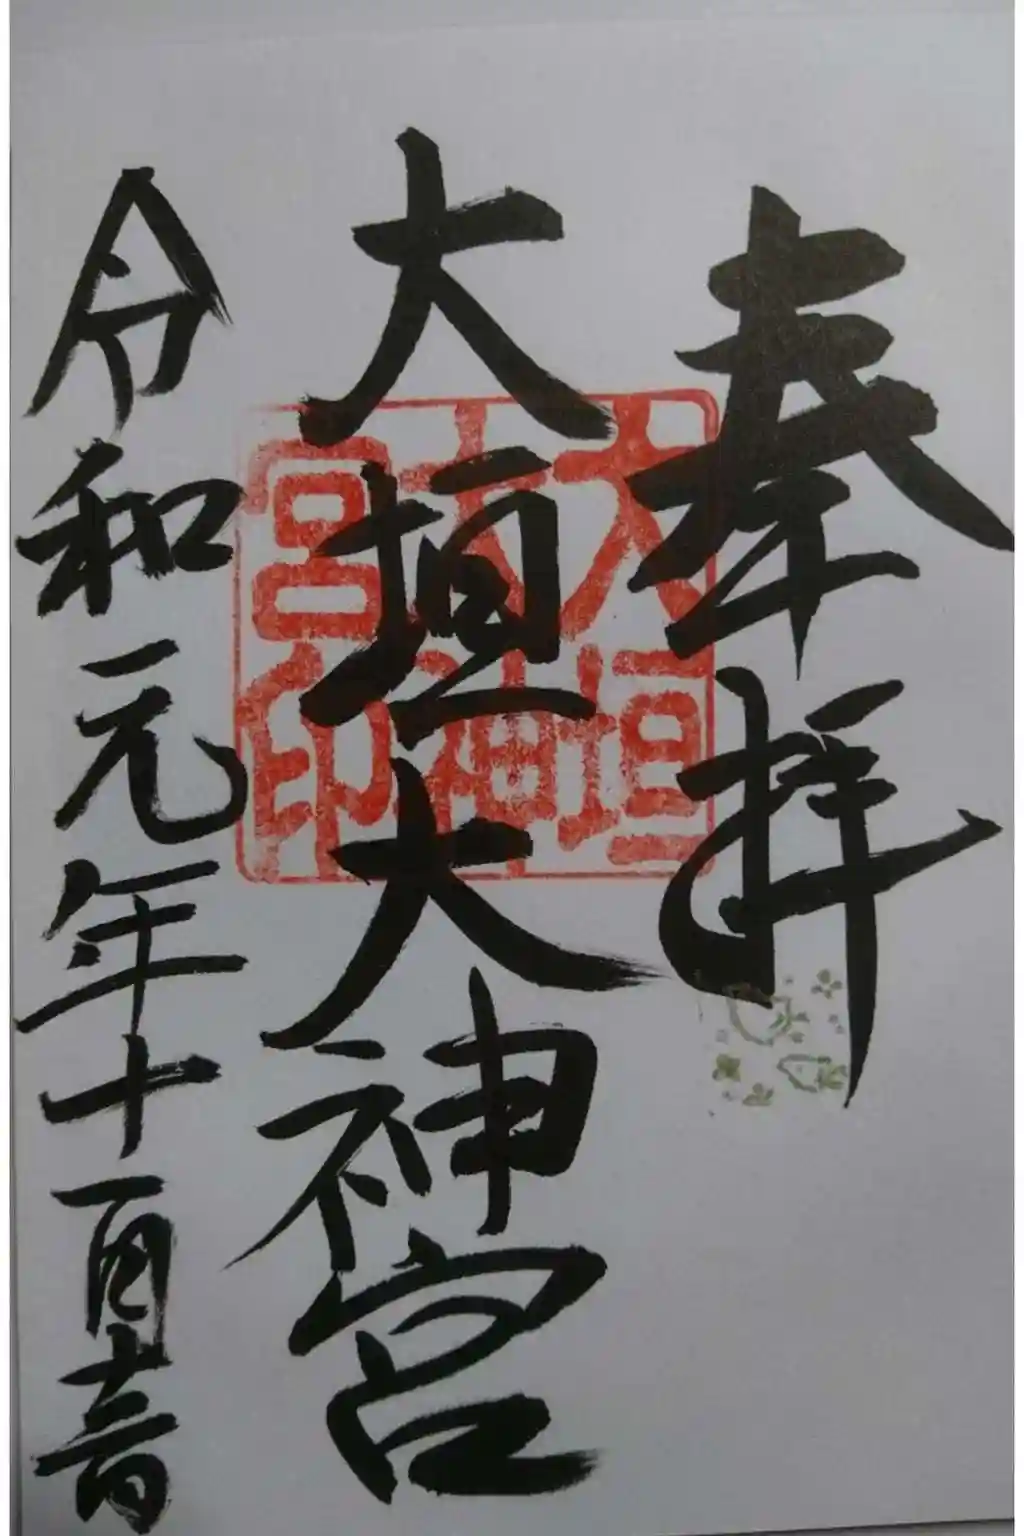 奉拝
大垣大神宮
令和元年十一月十三日
大垣
大神
宮印